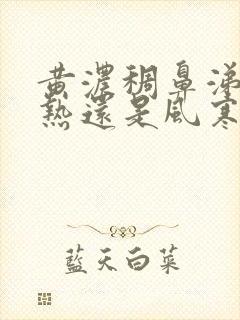 黄濃稠鼻涕
熱還是風寒
藍天白菜